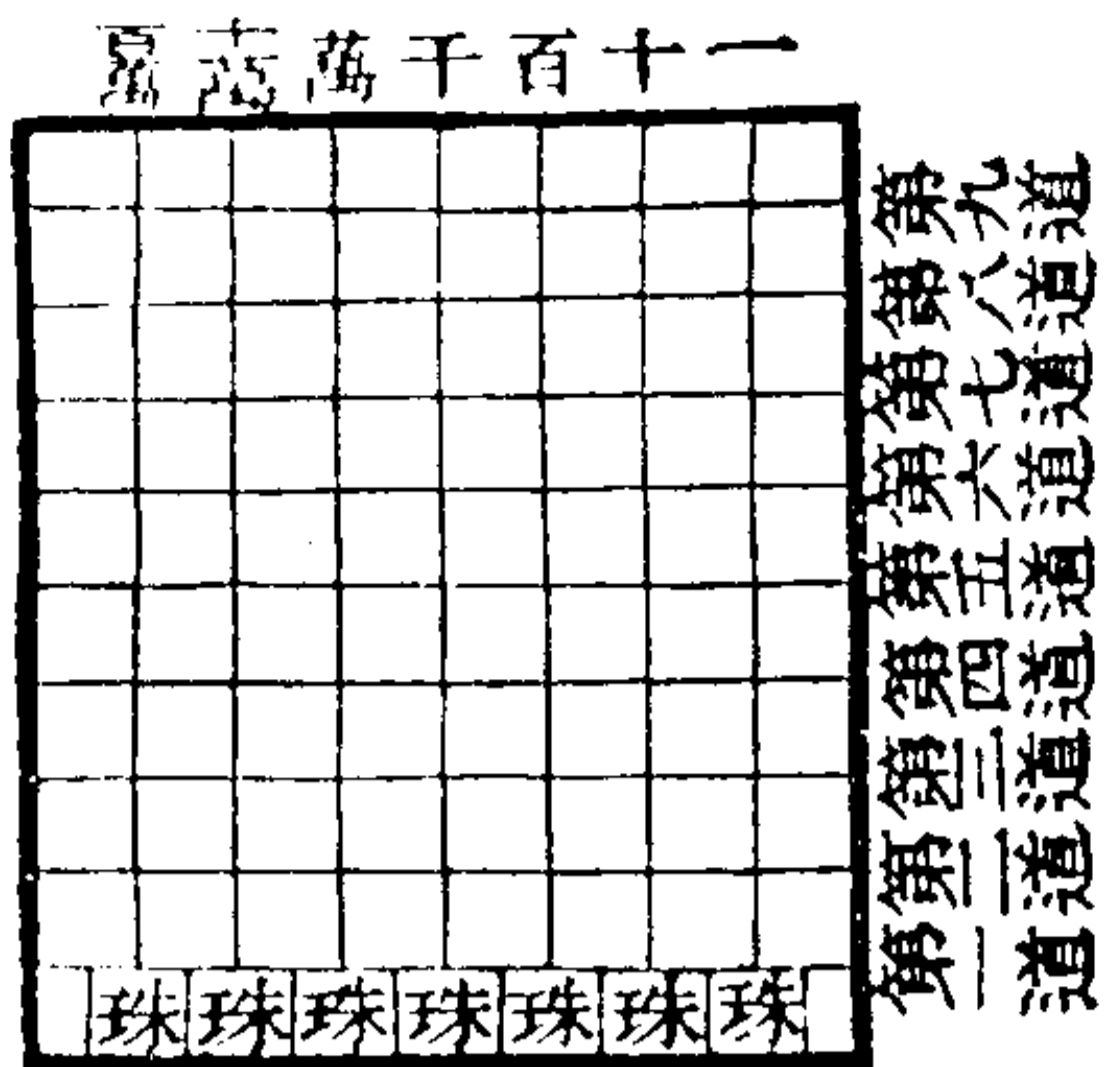 一十百千萬十萬百萬
第九道
第八道
第七道
第六道
第五道
第四道
第三道
第二道
第一道
珠珠珠珠珠珠珠